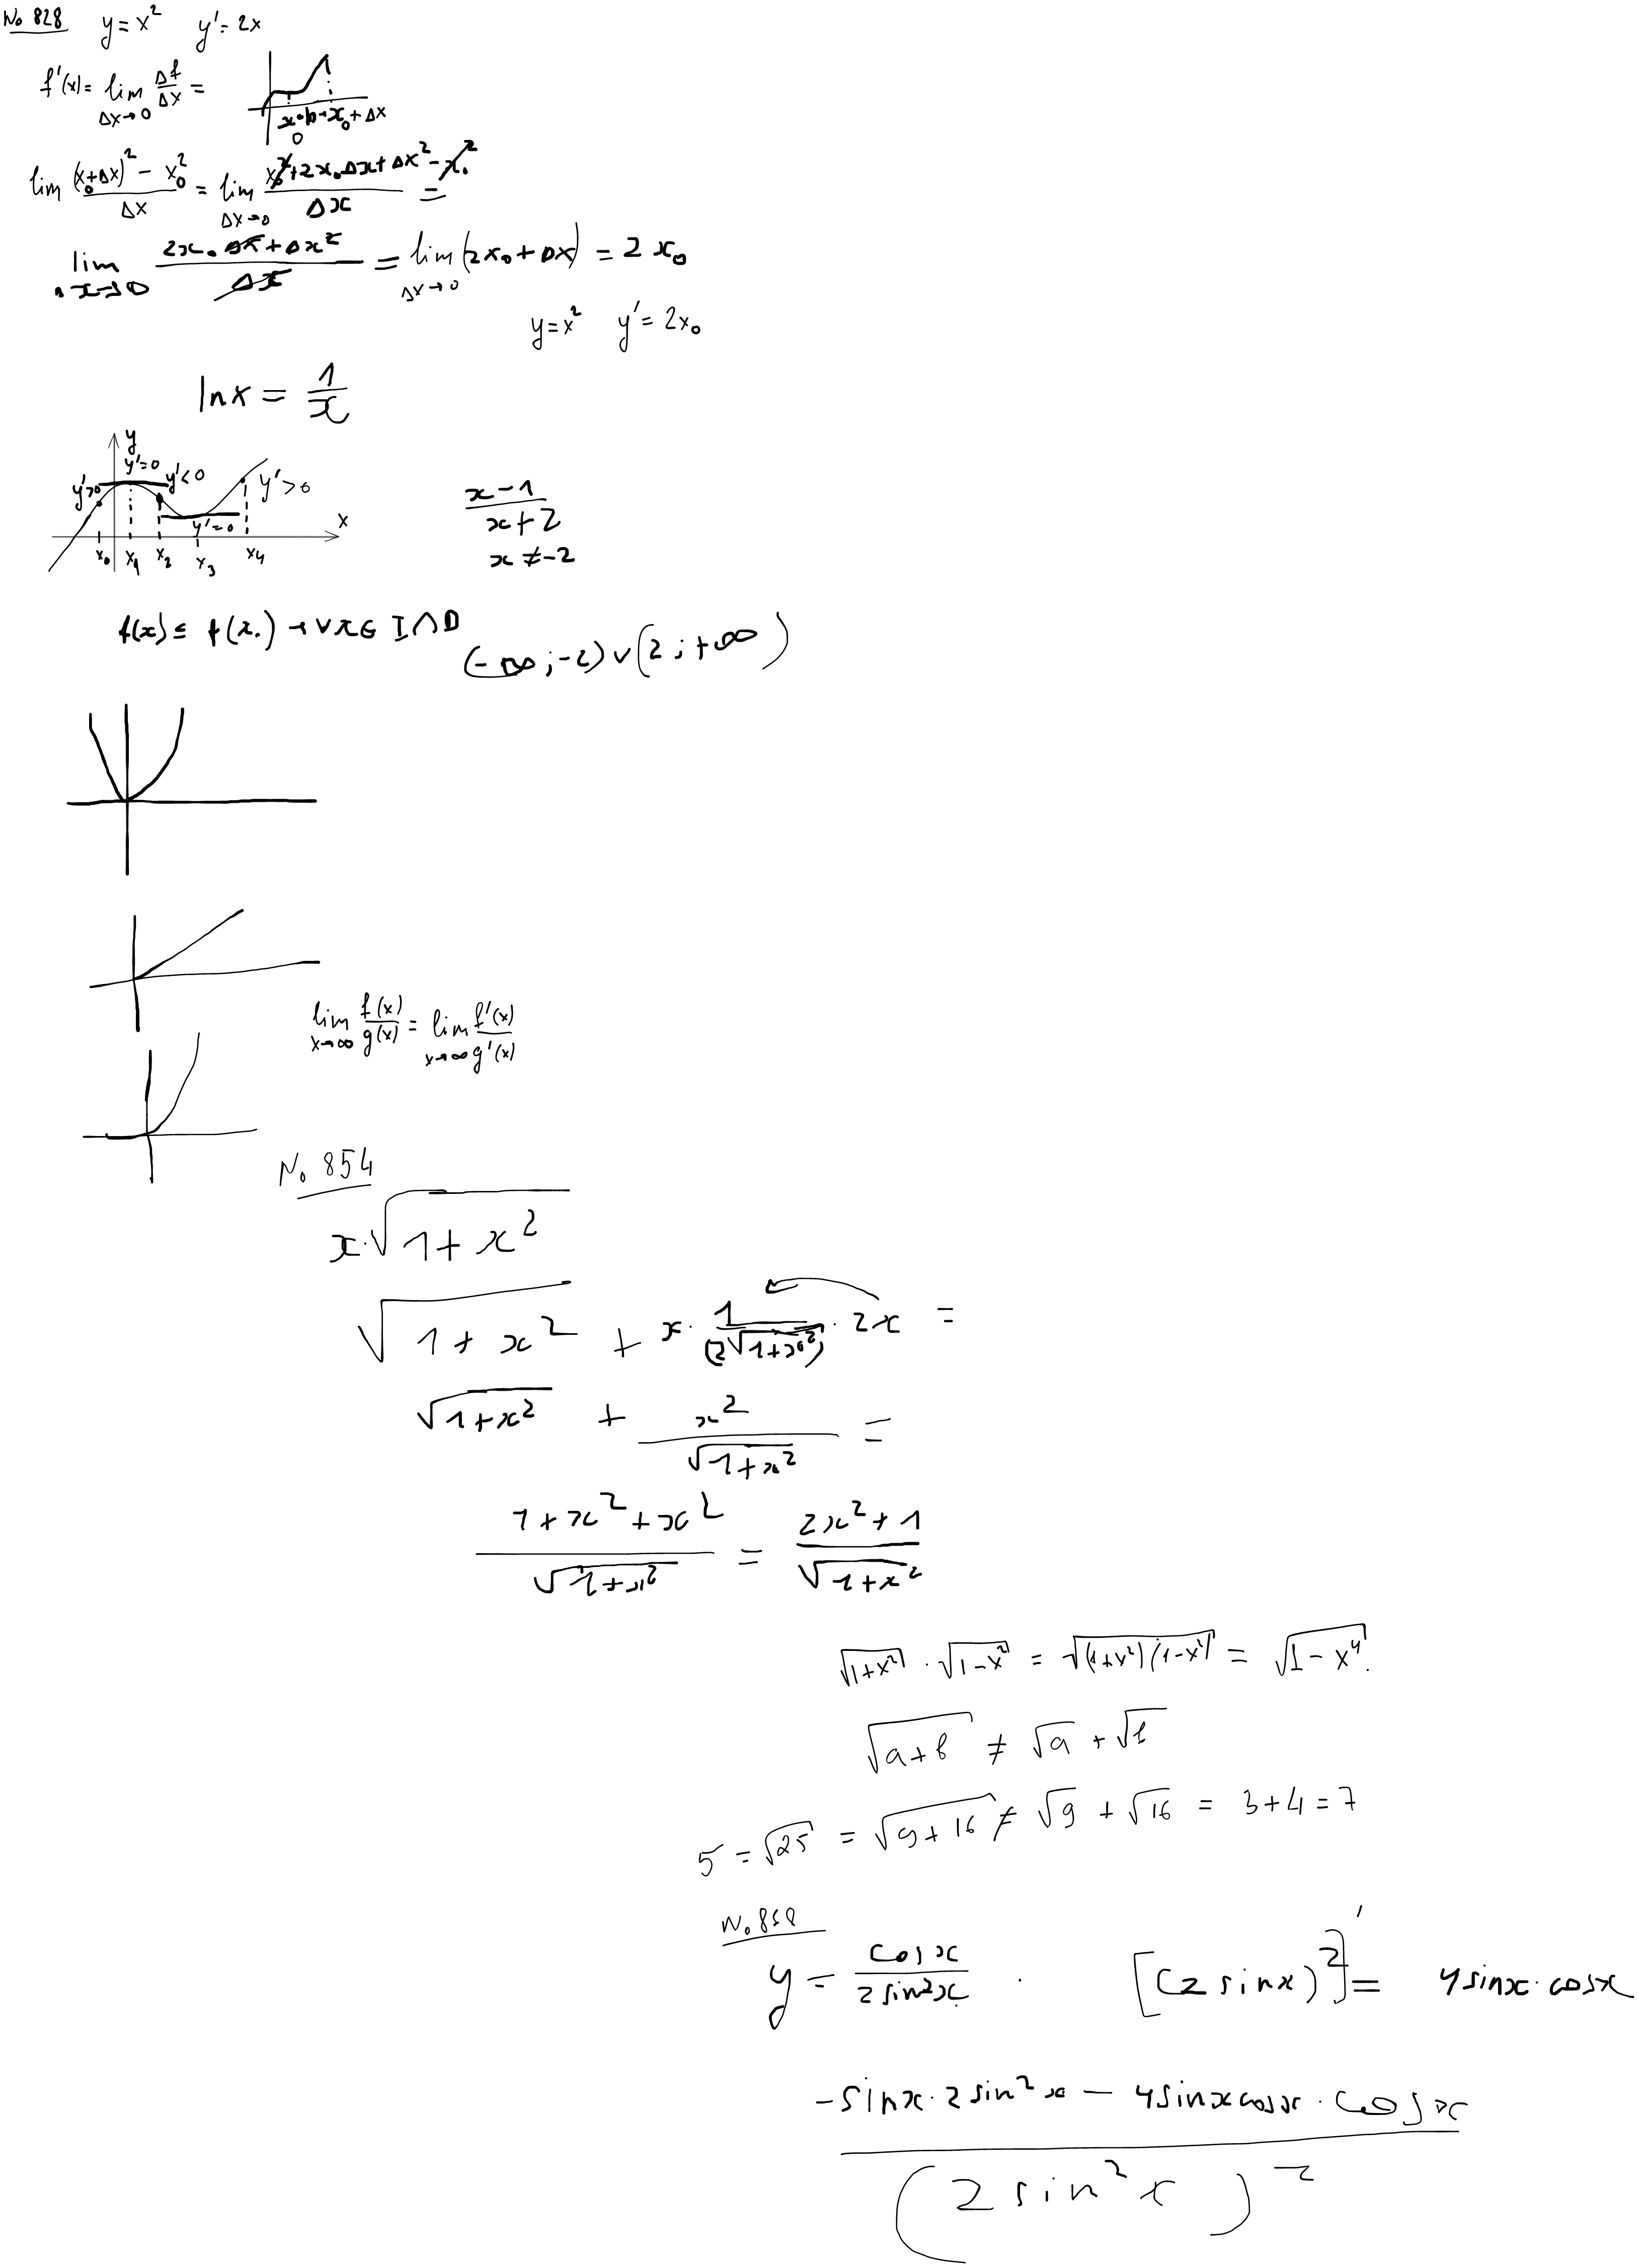 No 828 y = x² y' = 2x
f'(x) = lim Δx→0 Δf/Δx =
x₀ x₀+Δx
lim ((x₀+Δx)² - x₀²)/Δx = lim Δx→0 (x₀²+2x₀Δx+Δx²-x₀²)/Δx =
lim Δx→0 (2x₀Δx+Δx²)/Δx = lim Δx→0 (2x₀+Δx) = 2x₀
y = x² y' = 2x₀
ln x = 1/x
y
y'=0
y'>0 y'<0 y'>0
y'=0
x
x₀ x₁ x₂ x₃ x₄
(x-1)/(x+2)
x ≠ -2
f(x) ≤ f(x₀) → ∀x∈ I∩D
(-∞;-2)∨(2;+∞)
lim x→∞ f(x)/g(x) = lim x→∞ f'(x)/g'(x)
No 854
x·√(1+x²)
√(1+x²) + x·1/(2√(1+x²))·2x =
√(1+x²) + x²/√(1+x²) =
(1+x²+x²)/√(1+x²) = (2x²+1)/√(1+x²)
√(1+x²)·√(1-x²) = √((1+x²)(1-x²)) = √(1-x⁴).
√(a+b) ≠ √a + √b
5 = √25 = √(9+16) ≠ √9 + √16 = 3+4 = 7
No 858
y = cosx/(2sin²x) . [(2sinx)²]' = 4sinx·cosx
(-sinx·2sin²x - 4sinxcosx·cosx)/(2sin²x)²